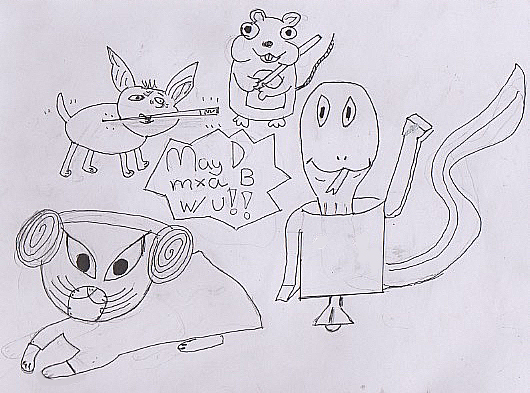 May D
mxa B
w/ U!!